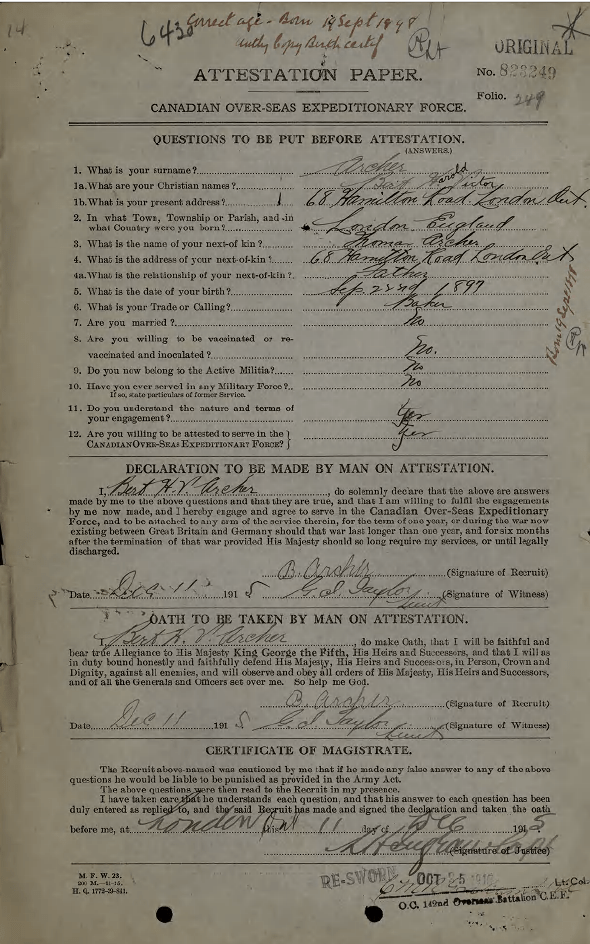 14
6430 Correct age - Born 19 Sept 1898
Authy Copy Birth certif
ORIGINAL
ATTESTATION PAPER.
No. 823249
Folio. 249
CANADIAN OVER-SEAS EXPEDITIONARY FORCE.
QUESTIONS TO BE PUT BEFORE ATTESTATION.
(ANSWERS.)
1. What is your surname? Archer
1a. What are your Christian names? Bert Harold Victor
1b. What is your present address? 68 Hamilton Road. London Ont.
2. In what Town, Township or Parish, and in
what Country were you born? London England
3. What is the name of your next-of kin? Thomas Archer
4. What is the address of your next-of-kin? 68 Hamilton Road London Ont
4a. What is the relationship of your next-of-kin? Father
5. What is the date of your birth? Sep 22nd 1897
6. What is your Trade or Calling? Baker
7. Are you married? No
8. Are you willing to be vaccinated or re-
vaccinated and inoculated? No.
9. Do you now belong to the Active Militia? No
10. Have you ever served in any Military Force? No
If so, state particulars of former Service.
11. Do you understand the nature and terms of
your engagement? Yes
12. Are you willing to be attested to serve in the
CANADIAN OVER-SEAS EXPEDITIONARY FORCE? Yes
Born 19 Sept 1898
DECLARATION TO BE MADE BY MAN ON ATTESTATION.
I, Bert H. V. Archer, do solemnly declare that the above are answers
made by me to the above questions and that they are true, and that I am willing to fulfil the engagements
by me now made, and I hereby engage and agree to serve in the Canadian Over-Seas Expeditionary
Force, and to be attached to any arm of the service therein, for the term of one year, or during the war now
existing between Great Britain and Germany should that war last longer than one year, and for six months
after the termination of that war provided His Majesty should so long require my services, or until legally
discharged.
B. Archer (Signature of Recruit)
Date Dec 11 1915 G. S. Taylor Lieut (Signature of Witness)
OATH TO BE TAKEN BY MAN ON ATTESTATION.
I, Bert H. V. Archer, do make Oath, that I will be faithful and
bear true Allegiance to His Majesty King George the Fifth, His Heirs and Successors, and that I will as
in duty bound honestly and faithfully defend His Majesty, His Heirs and Successors, in Person, Crown and
Dignity, against all enemies, and will observe and obey all orders of His Majesty, His Heirs and Successors,
and of all the Generals and Officers set over me. So help me God.
B. Archer (Signature of Recruit)
Date Dec 11 1915 G. S. Taylor Lieut (Signature of Witness)
CERTIFICATE OF MAGISTRATE.
The Recruit above-named was cautioned by me that if he made any false answer to any of the above
questions he would be liable to be punished as provided in the Army Act.
The above questions were then read to the Recruit in my presence.
I have taken care that he understands each question, and that his answer to each question has been
duly entered as replied to, and the said Recruit has made and signed the declaration and taken the oath
before me, at London Ont this 11 day of Dec 1915
(Signature of Justice)
M. F. W. 23.
200 M.-11-15.
H. Q. 1772-39-841.
RE-SWORN OCT 25 1916
Lt. Col.
O.C. 149nd Overseas Battalion C.E.F.